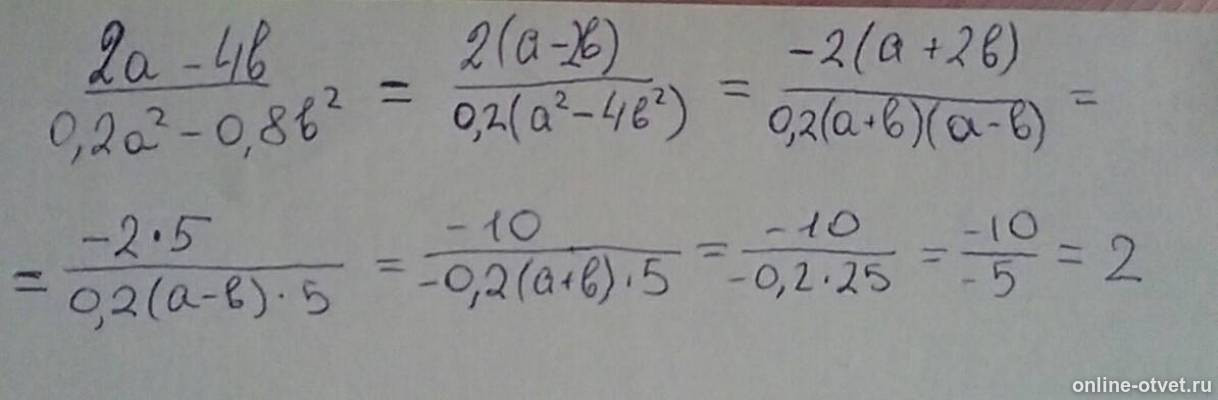 (2a - 4b) / (0,2a² - 0,8b²) = 2(a - 2b) / 0,2(a² - 4b²) = -2(a + 2b) / 0,2(a+b)(a-b) =
= -2·5 / 0,2(a-b)·5 = -10 / -0,2(a+b)·5 = -10 / -0,2·25 = -10 / -5 = 2
online-otvet.ru